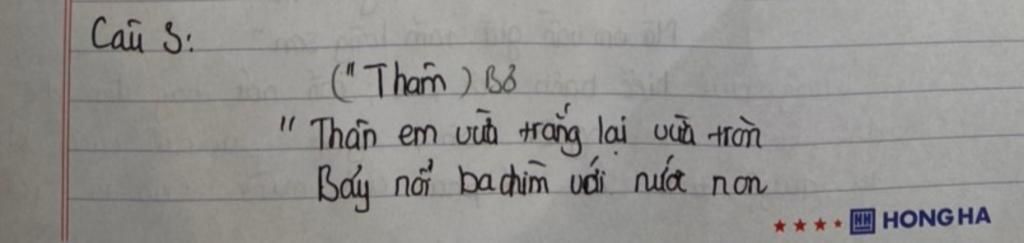 Câu 3:
("Thân) Bỏ
"Thân em vừa trắng lại vừa tròn
Bảy nổi ba chìm với nước non
HONG HA